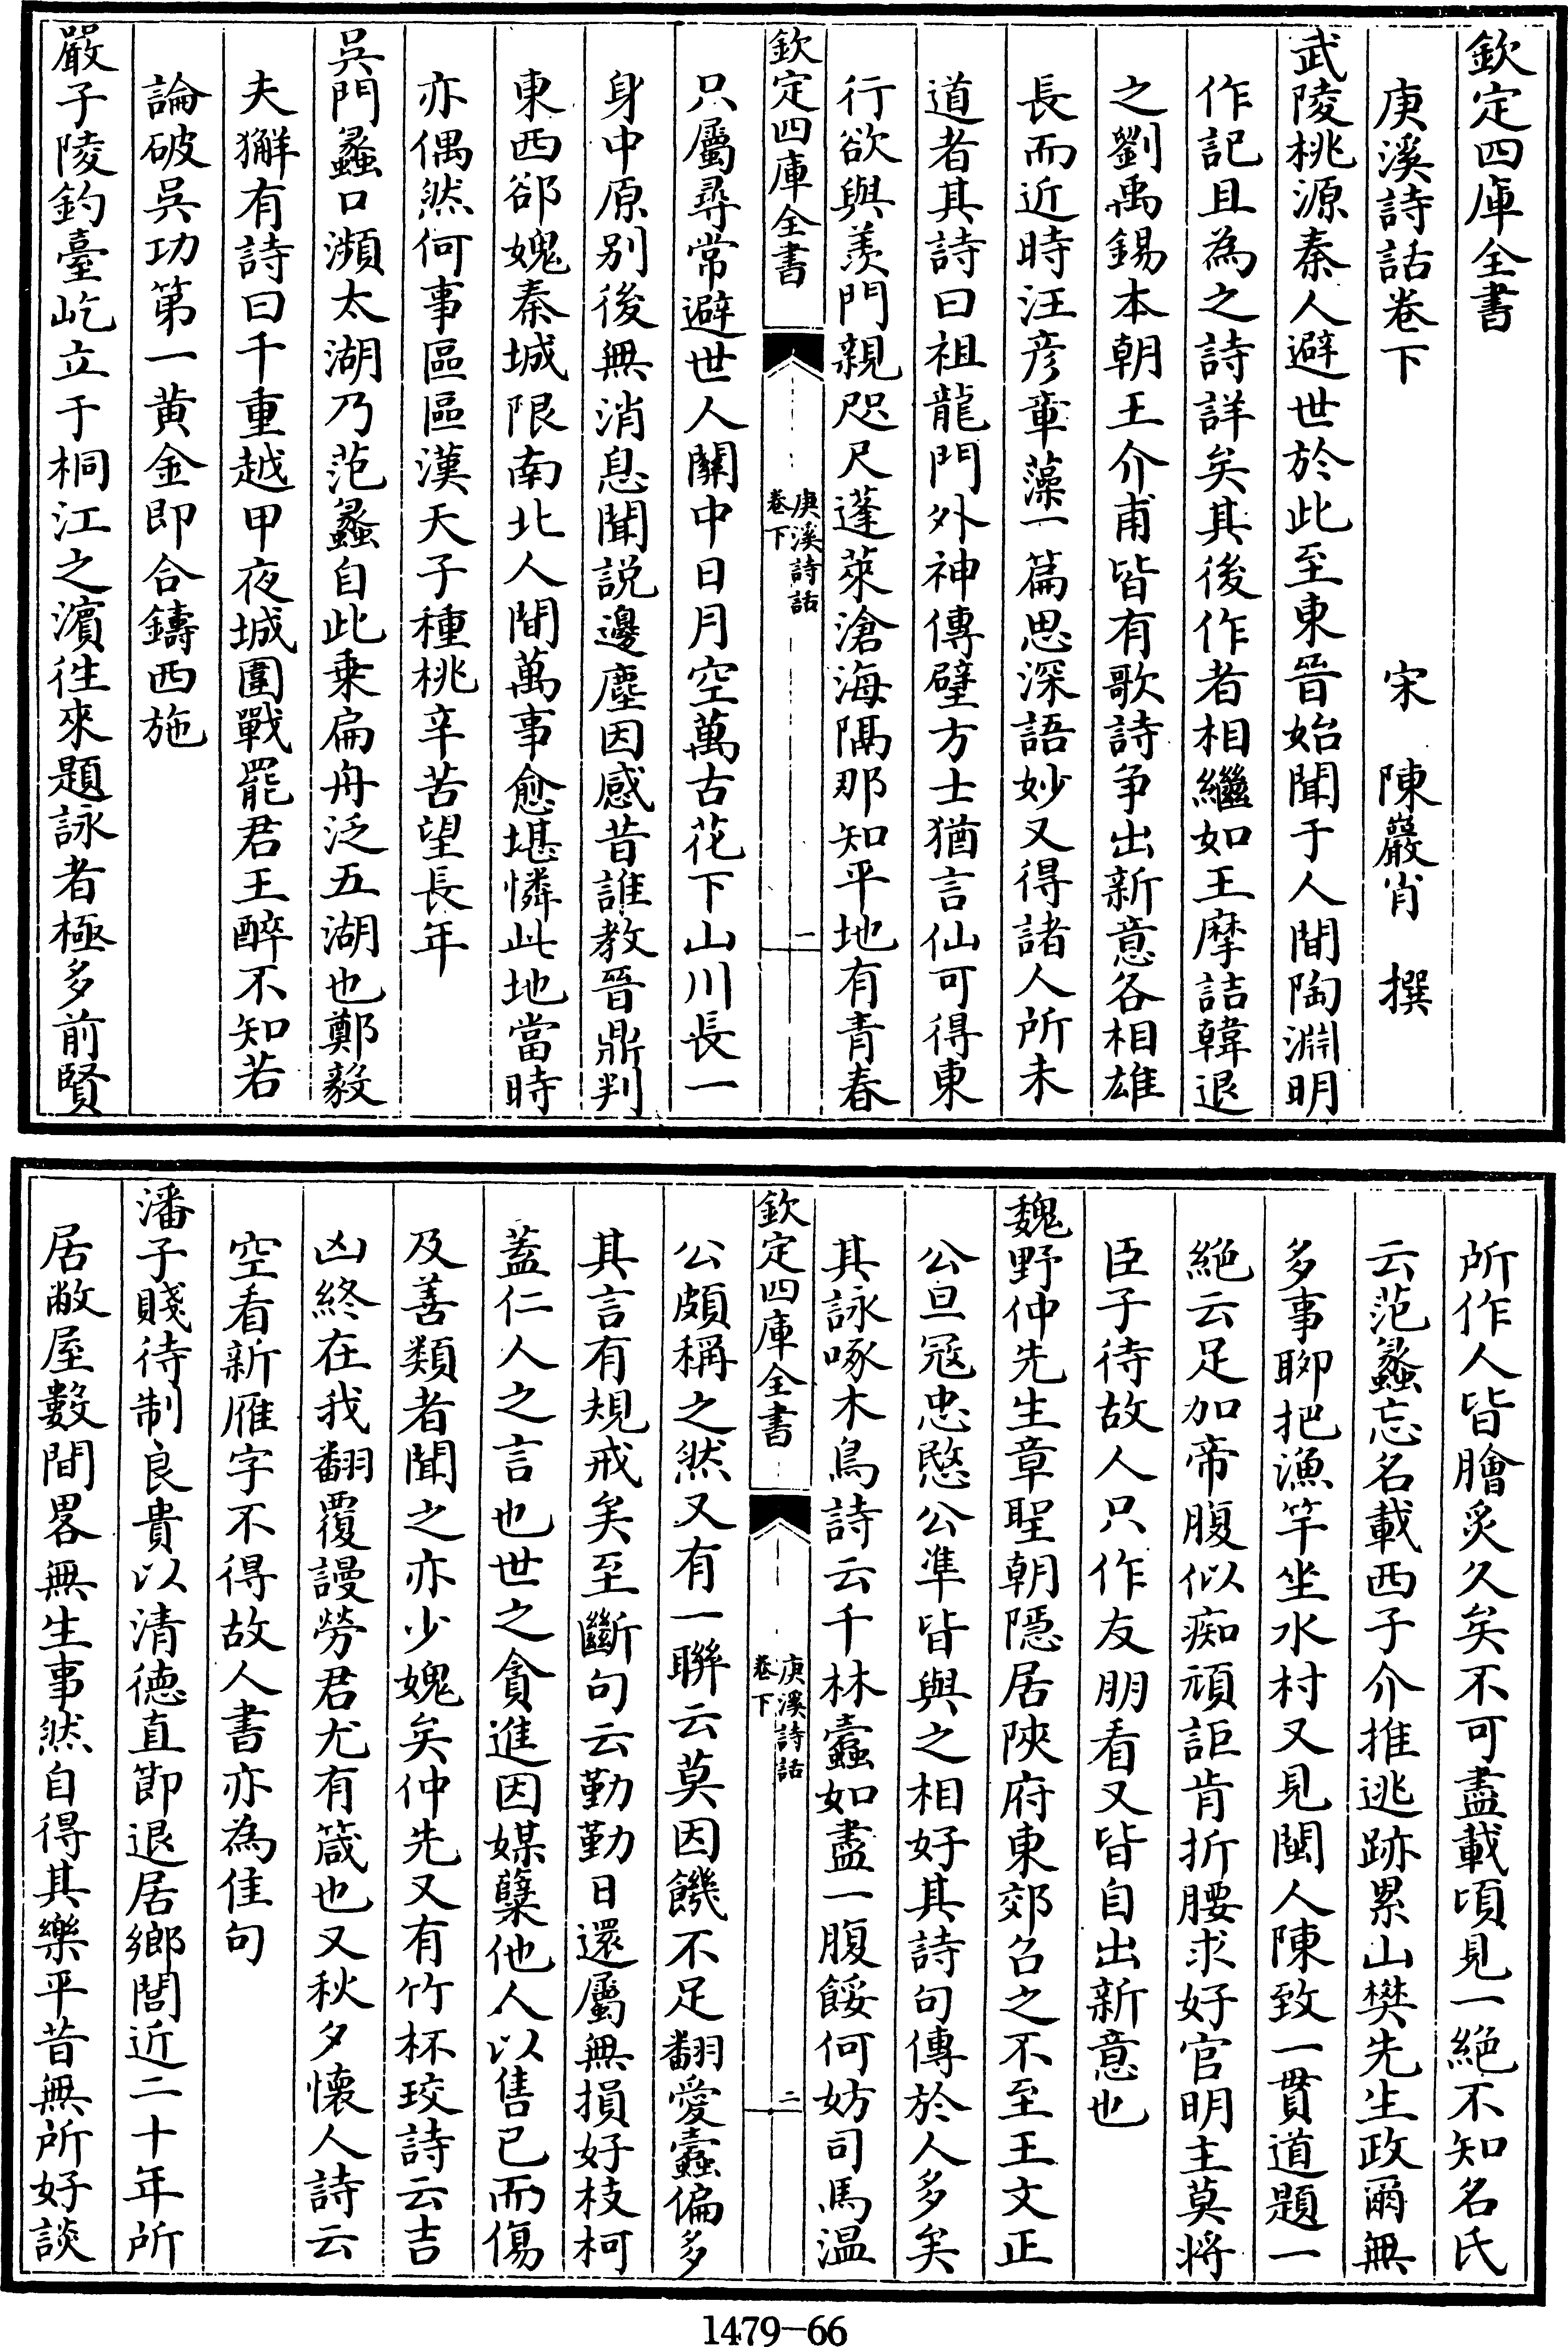 欽定四庫全書
庚溪詩話卷下
宋　陳巖肖　撰
武陵桃源秦人避世於此至東晉始聞于人間陶淵明
作記且為之詩詳矣其後作者相繼如王摩詰韓退
之劉禹錫本朝王介甫皆有歌詩争出新意各相雄
長而近時汪彦章藻一篇思深語妙又得諸人所未
道者其詩曰祖龍門外神傳璧方士猶言仙可得東
行欲與羨門親咫尺蓬萊滄海隔那知平地有青春
欽定四庫全書
庚溪詩話
卷下
一
只屬尋常避世人關中日月空萬古花下山川長一
身中原别後無消息聞説邊塵因感昔誰教晉鼎判
東西郤媿秦城限南北人間萬事愈堪憐此地當時
亦偶然何事區區漢天子種桃辛苦望長年
吳門蠡口瀕太湖乃范蠡自此乗扁舟泛五湖也鄭毅
夫獬有詩曰千重越甲夜城圍戰罷君王醉不知若
論破吳功第一黄金即合鑄西施
嚴子陵釣臺屹立于桐江之濱徃來題詠者極多前賢
所作人皆膾炙久矣不可盡載頃見一絶不知名氏
云范蠡忘名載西子介推逃跡累山樊先生政爾無
多事聊把漁竿坐水村又見閩人陳致一貫道題一
絶云足加帝腹似痴頑詎肯折腰求好官明主莫將
臣子待故人只作友朋看又皆自出新意也
魏野仲先生章聖朝隱居陜府東郊召之不至王文正
公旦冦忠愍公凖皆與之相好其詩句傳於人多矣
其詠啄木鳥詩云千林蠹如盡一腹餒何妨司馬温
欽定四庫全書
庚溪詩話
卷下
二
公頗稱之然又有一聯云莫因饑不足翻愛蠹偏多
其言有規戒矣至斷句云勤勤日還屬無損好枝柯
蓋仁人之言也世之貪進因媒櫱他人以售己而傷
及善類者聞之亦少媿矣仲先又有竹杯珓詩云吉
凶終在我翻覆謾勞君尤有箴也又秋夕懷人詩云
空看新雁字不得故人書亦為佳句
潘子賤待制良貴以清德直節退居鄉閭近二十年所
居敝屋數間畧無生事然自得其樂平昔無所好談
1479-66